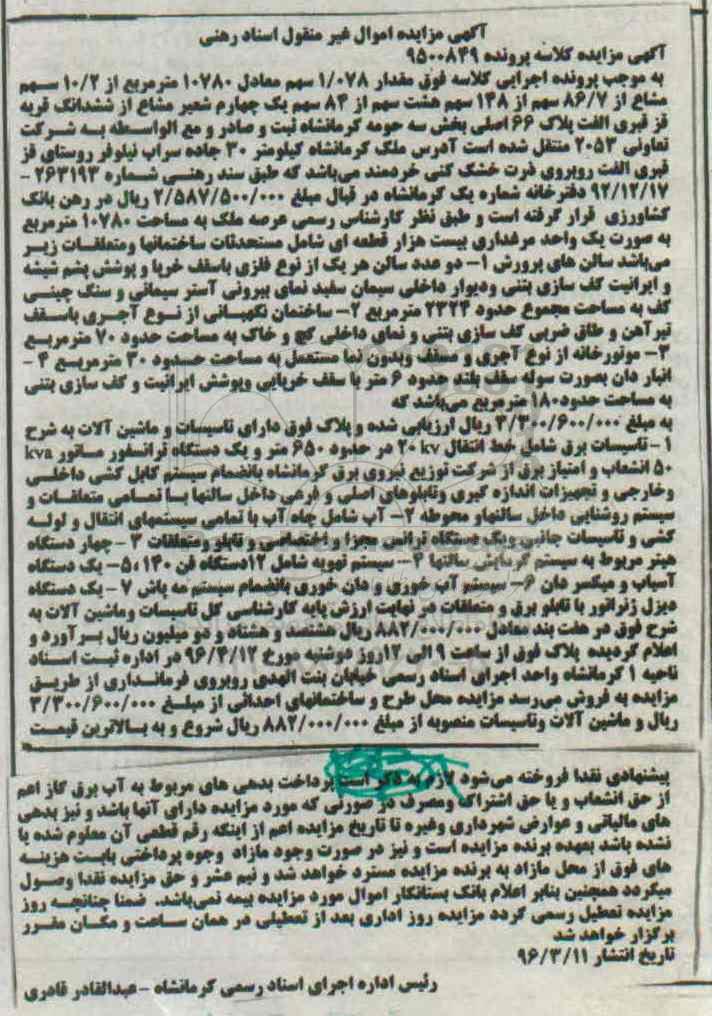 آگهی مزایده اموال غیر منقول اسناد رهنی
آگهی مزایده کلاسه پرونده ۹۵۰۰۸۴۹
به موجب پرونده اجرایی کلاسه فوق مقدار ۱/۰۷۸ سهم معادل ۱۰۷۸۰ مترمربع از ۱۰/۲ سهم
مشاع از ۸۶/۷ سهم از ۱۴۸ سهم هشت سهم از ۸۴ سهم یک چهارم شعیر مشاع از ششدانگ قریه
قز قبری الفت پلاک ۶۶ اصلی بخش سه حومه کرمانشاه ثبت و صادر و مع الواسطه به شرکت
تعاونی ۲۰۵۳ منتقل شده است آدرس ملک کرمانشاه کیلومتر ۳۰ جاده سراب نیلوفر روستای قز
قبری الفت روبروی ذرت خشک کنی خردمند می‌باشد که طبق سند رهنی شماره ۲۶۳۱۹۳ -
۹۲/۱۲/۱۷ دفترخانه شماره یک کرمانشاه در قبال مبلغ ۲/۵۸۷/۵۰۰/۰۰۰ ریال در رهن بانک
کشاورزی قرار گرفته است و طبق نظر کارشناس رسمی عرصه ملک به مساحت ۱۰۷۸۰ مترمربع
به صورت یک واحد مرغداری بیست هزار قطعه ای شامل مستحدثات ساختمانها ومتعلقات زیر
می‌باشد سالن های پرورش ۱- دو عدد سالن هر یک از نوع فلزی باسقف خرپا و پوشش پشم شیشه
و ایرانیت کف سازی بتنی ودیوار داخلی سیمان سفید نمای بیرونی آستر سیمانی و سنگ چینی
کف به مساحت مجموع حدود ۲۳۲۴ مترمربع ۲- ساختمان نگهبانی از نوع آجری باسقف
تیرآهن و طاق ضربی کف سازی بتنی و نمای داخلی گچ و خاک به مساحت حدود ۷۰ مترمربع
۳- موتورخانه از نوع آجری و مسقف وبدون نما مستعمل به مساحت حدود ۳۰ مترمربع ۴-
انبار دان بصورت سوله سقف بلند حدود ۶ متر با سقف خرپایی وپوشش ایرانیت و کف سازی بتنی
به مساحت حدود۱۸۰ مترمربع می‌باشد که
به مبلغ ۳/۳۰۰/۶۰۰/۰۰۰ ریال ارزیابی شده و پلاک فوق دارای تاسیسات و ماشین آلات به شرح
۱- تاسیسات برق شامل خط انتقال ۲۰ kv در حدود ۶۵۰ متر و یک دستگاه ترانسفور ماتور kva
۵۰ انشعاب و امتیاز برق از شرکت توزیع نیروی برق کرمانشاه بانضمام سیستم کابل کشی داخلی
وخارجی و تجهیزات اندازه گیری وتابلوهای اصلی و فرعی داخل سالنها با تمامی متعلقات و
سیستم روشنایی داخل سالنهاو محوطه ۲- آب شامل چاه آب با تمامی سیستمهای انتقال و لوله
کشی و تاسیسات جانبی ویک دستگاه ترانس مجزا و اختصاصی و تابلو ومتعلقات ۳- چهار دستگاه
هیتر مربوط به سیستم گرمایش سالنها ۴- سیستم تهویه شامل ۱۲دستگاه فن ۱۴۰ ،۵- یک دستگاه
آسیاب و میکسر دان ۶- سیستم آب خوری و دان خوری بانضمام سیستم مه پاش ۷- یک دستگاه
دیزل ژنراتور با تابلو برق و متعلقات در نهایت ارزش پایه کارشناسی کل تاسیسات وماشین آلات به
شرح فوق در هفت بند معادل ۸۸۲/۰۰۰/۰۰۰ ریال هشتصد و هشتاد و دو میلیون ریال برآورد و
اعلام گردیده پلاک فوق از ساعت ۹ الی ۱۲روز دوشنبه مورخ ۹۶/۴/۱۲ در اداره ثبت اسناد
ناحیه ۱ کرمانشاه واحد اجرای اسناد رسمی خیابان بنت الهدی روبروی فرمانداری از طریق
مزایده به فروش می‌رسد مزایده محل طرح و ساختمانهای احداثی از مبلغ ۳/۳۰۰/۶۰۰/۰۰۰
ریال و ماشین آلات وتاسیسات منصوبه از مبلغ ۸۸۲/۰۰۰/۰۰۰ ریال شروع و به بالاترین قیمت
پیشنهادی نقدا فروخته می‌شود لازم به ذکر است پرداخت بدهی های مربوط به آب برق گاز اعم
از حق انشعاب و یا حق اشتراک ومصرف در صورتی که مورد مزایده دارای آنها باشد و نیز بدهی
های مالیاتی و عوارض شهرداری وغیره تا تاریخ مزایده اعم از اینکه رقم قطعی آن معلوم شده یا
نشده باشد بعهده برنده مزایده است و نیز در صورت وجود مازاد وجوه پرداختی بابت هزینه
های فوق از محل مازاد به برنده مزایده مسترد خواهد شد و نیم عشر و حق مزایده نقدا وصول
میگردد همچنین بنابر اعلام بانک بستانکار اموال مورد مزایده بیمه نمی‌باشد. ضمنا چنانچه روز
مزایده تعطیل رسمی گردد مزایده روز اداری بعد از تعطیلی در همان ساعت و مکان مقرر
برگزار خواهد شد
تاریخ انتشار ۹۶/۳/۱۱
رئیس اداره اجرای اسناد رسمی کرمانشاه - عبدالقادر قادری